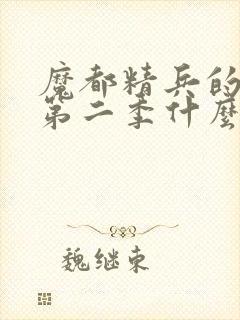 魔都精兵的
第二季什麼
魏继东